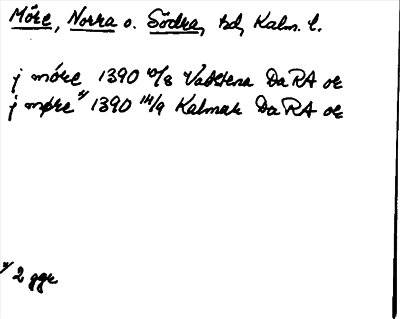 Möre, Norra o. Södra, hd, Kalm. l.
j móre 1390 10/8 Vadstena DaRA or
j møre x/ 1390 14/9 Kalmar DaRA or
x/ 2 ggr